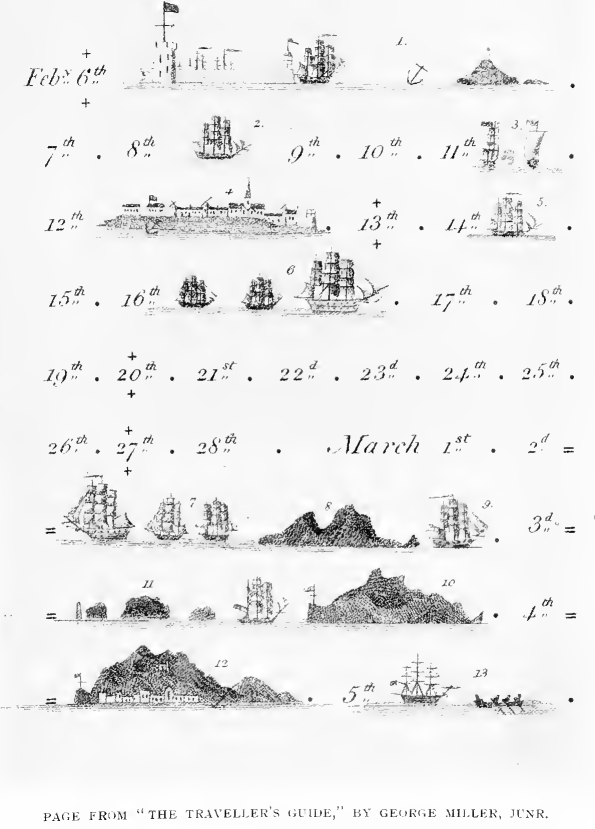 Feby 6th 1. .
7th . 8th 2. 9th . 10th . 11th 3. .
12th + . 13th . 14th 5. .
15th . 16th 6 . 17th . 18th .
19th . 20th . 21st . 22d . 23d . 24th . 25th .
26th . 27th . 28th . . March 1st . 2d =
= 7 8 9. . 3d =
= 11 10 . 4th =
= 12 . 5th 13 .
PAGE FROM "THE TRAVELLER'S GUIDE," BY GEORGE MILLER, JUNR.